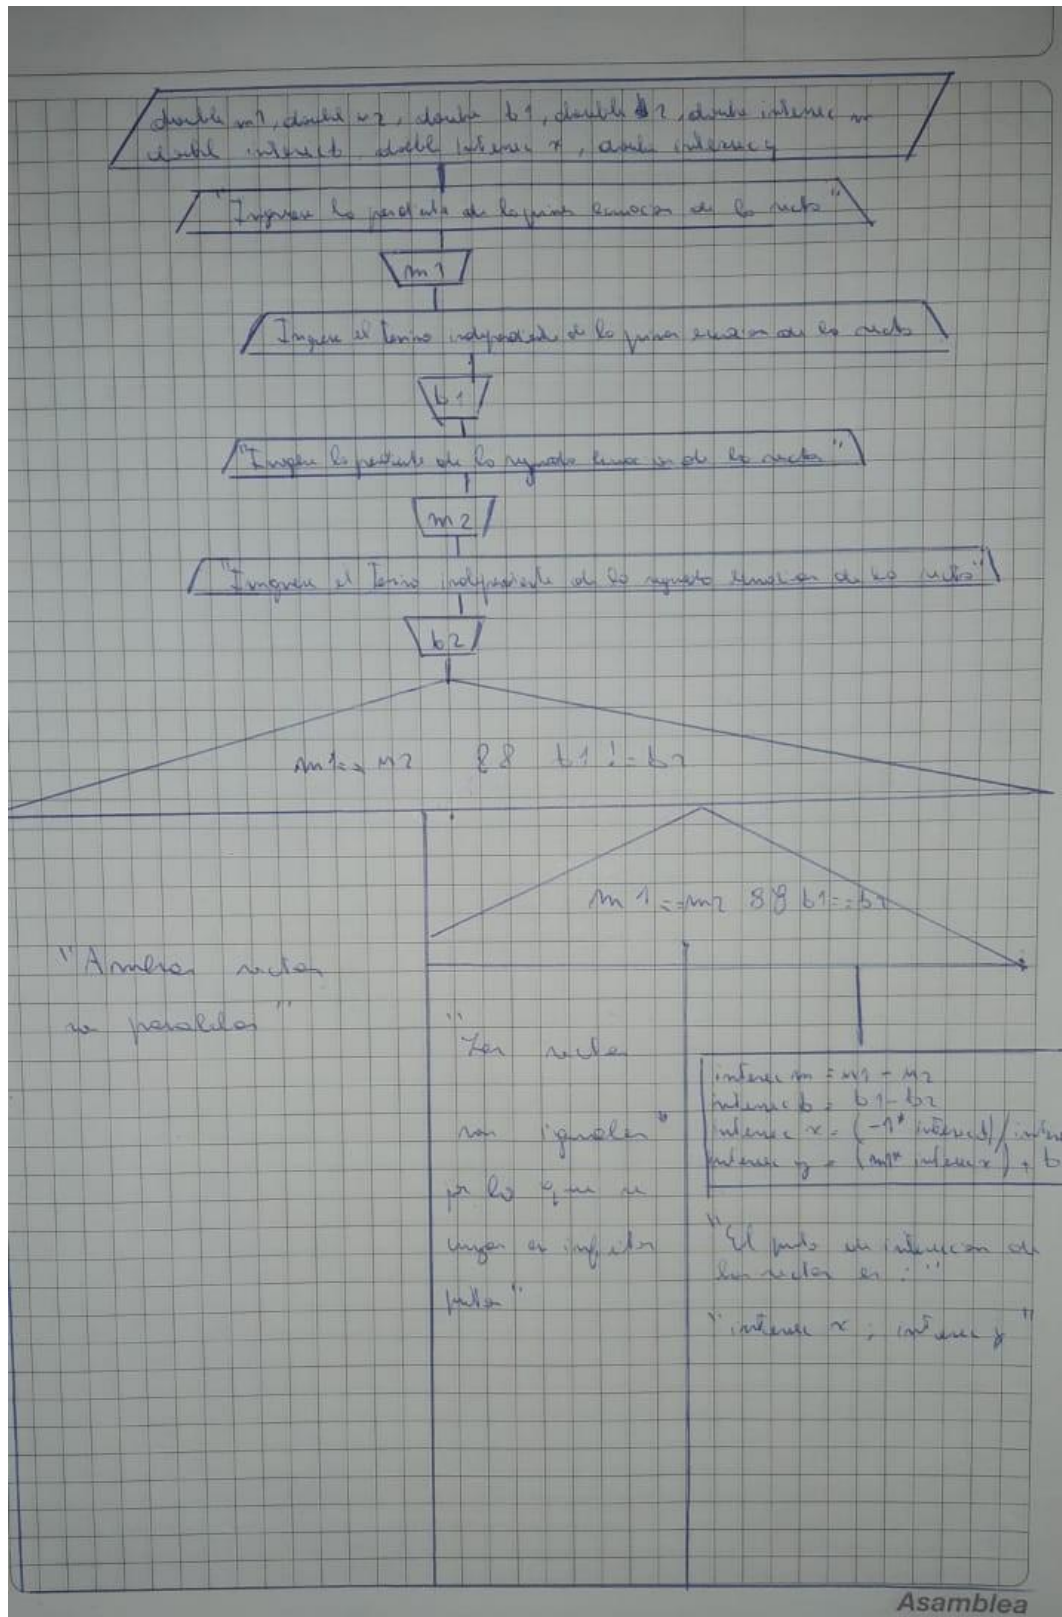 double m1, double m2, double b1, double b2, double intersec m
double intersec b, double intersec x, double intersec y
"Ingrese la pendiente de la primera ecuacion de la recta"
m1
Ingrese el termino independiente de la primer ecuacion de la recta
b1
"Ingrese la pendiente de la segunda ecuacion de la recta"
m2
"Ingrese el termino independiente de la segunda ecuacion de la recta"
b2
m1 == m2 && b1 != b2
m1 == m2 && b1 == b2
"Ambas rectas
son paralelas"
"Las rectas
son iguales
por lo que se
cruzan en infinitos
puntos"
intersec m = m1 - m2
intersec b = b1 - b2
intersec x = (-1* intersec b) /
intersec y = (m1* intersec x) + b
"El punto de interseccion de
las rectas es :"
"intersec x ; intersec y"
Asamblea